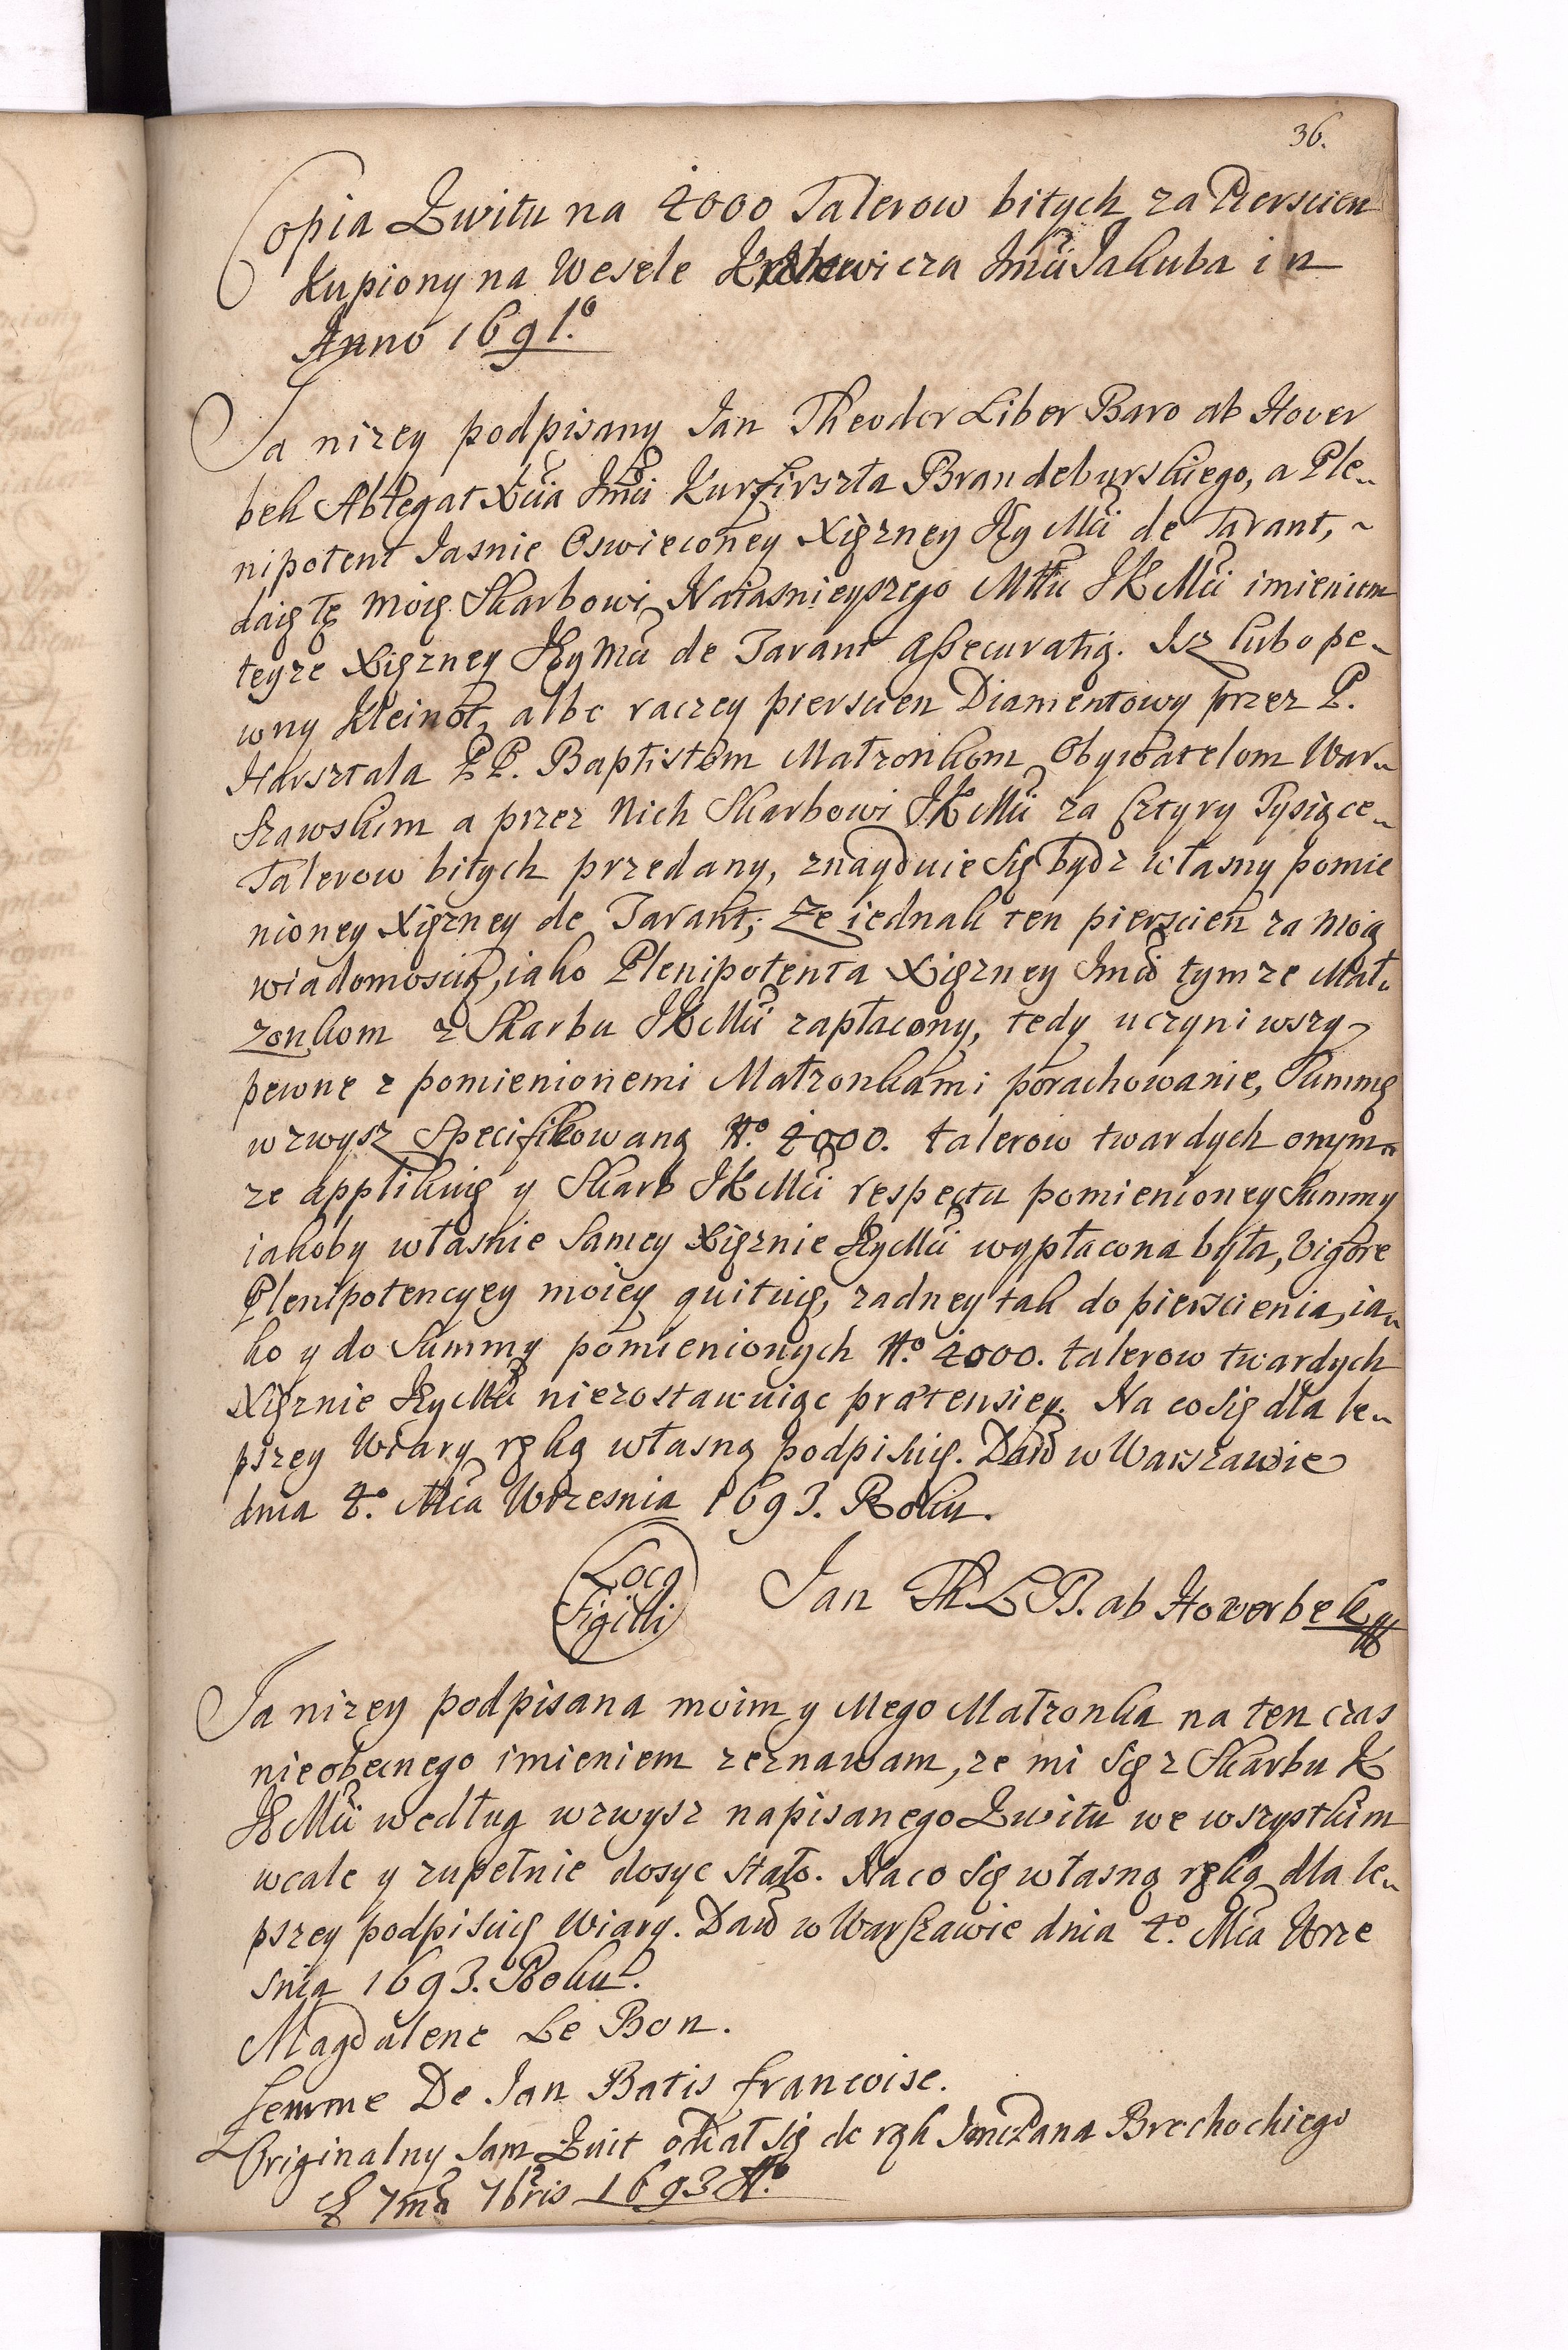 36.
Copia Kwitu na 4000 Talerow bitych za Pierscien
Kupiony na Wesele Krolewicza Jmći Jakuba in
Anno 1691.o
Ja nizey podpisany Jan Theodor Liber Baro ab Hover
bek Ablegat Xcia Jmći Kurfirszta Brandeburskiego, a Ple-
nipotent Jasnie Oswieconey Xiężney JEy Mći de Tarant,
daię tę moię Skarbowi Naiasnieyszego Mttu JKMći imieniem
teyże Xiężney JEyMći de Tarant assecuratią. Isz lubo pe-
wny Kleinot, albo raczey pierscien Diamentowy przez P.
Harsztala PP. Baptistom Małzonkom Obywatelom War-
szawskim a przez Nich Skarbowi JKMći za Cztyry Tysiące
Talerow bitych przedany, znayduie się bydz własny pomie
nioney Xiężney de Tarant; Ze iednak ten pierscien za moią
wiadomoscią, iako Plenipotenta Xiężney Jmći tymze Mał-
zonkom z Skarbu JKMći zapłacony, tedy uczyniwszy
pewne z pomienionemi Małzonkami porachowanie, Summę
wzwysz Specifikowaną No. 4000. talerow twardych onym-
ze applikuię y Skarb JKMći respectu pomienioney Summy
iakoby własnie Samey Xiężnie JEyMći wypłacona była, vigore
Plenipotencyey moiey quituię, zadney tak do pierscienia, ia-
ko y do Summy pomienionych No. 4000. talerow twardych
Xiężnie JEyMći niezostawuiąc prætensiey. Na co się dla le-
pszey Wiary ręką własną podpisuię. Dań w Warszawie
dnia 4.o Mca Wrzesnia 1693. Roku.
Loco
Sigilli
Jan Th L B. ab Howerbek
Ja nizey podpisana moim y Mego Małzonka na ten czas
nieobecnego imieniem zeznawam, ze mi się z Skarbu K
JKMći według wzwysz napisanego Kwitu we wszystkim
wcale y zupełnie dosyc stało. Na co się własną ręką dla le-
pszey podpisuię Wiary. Dań w Warszawie dnia 4.o Mca Wrze
snia 1693. Roku.
Magdalene Le Bon.
femme De Jan Batis francoise.
Originalny Sam Kwit oddał się do rąk Jmć Pana Brechockiego
7ma 7bris 1693